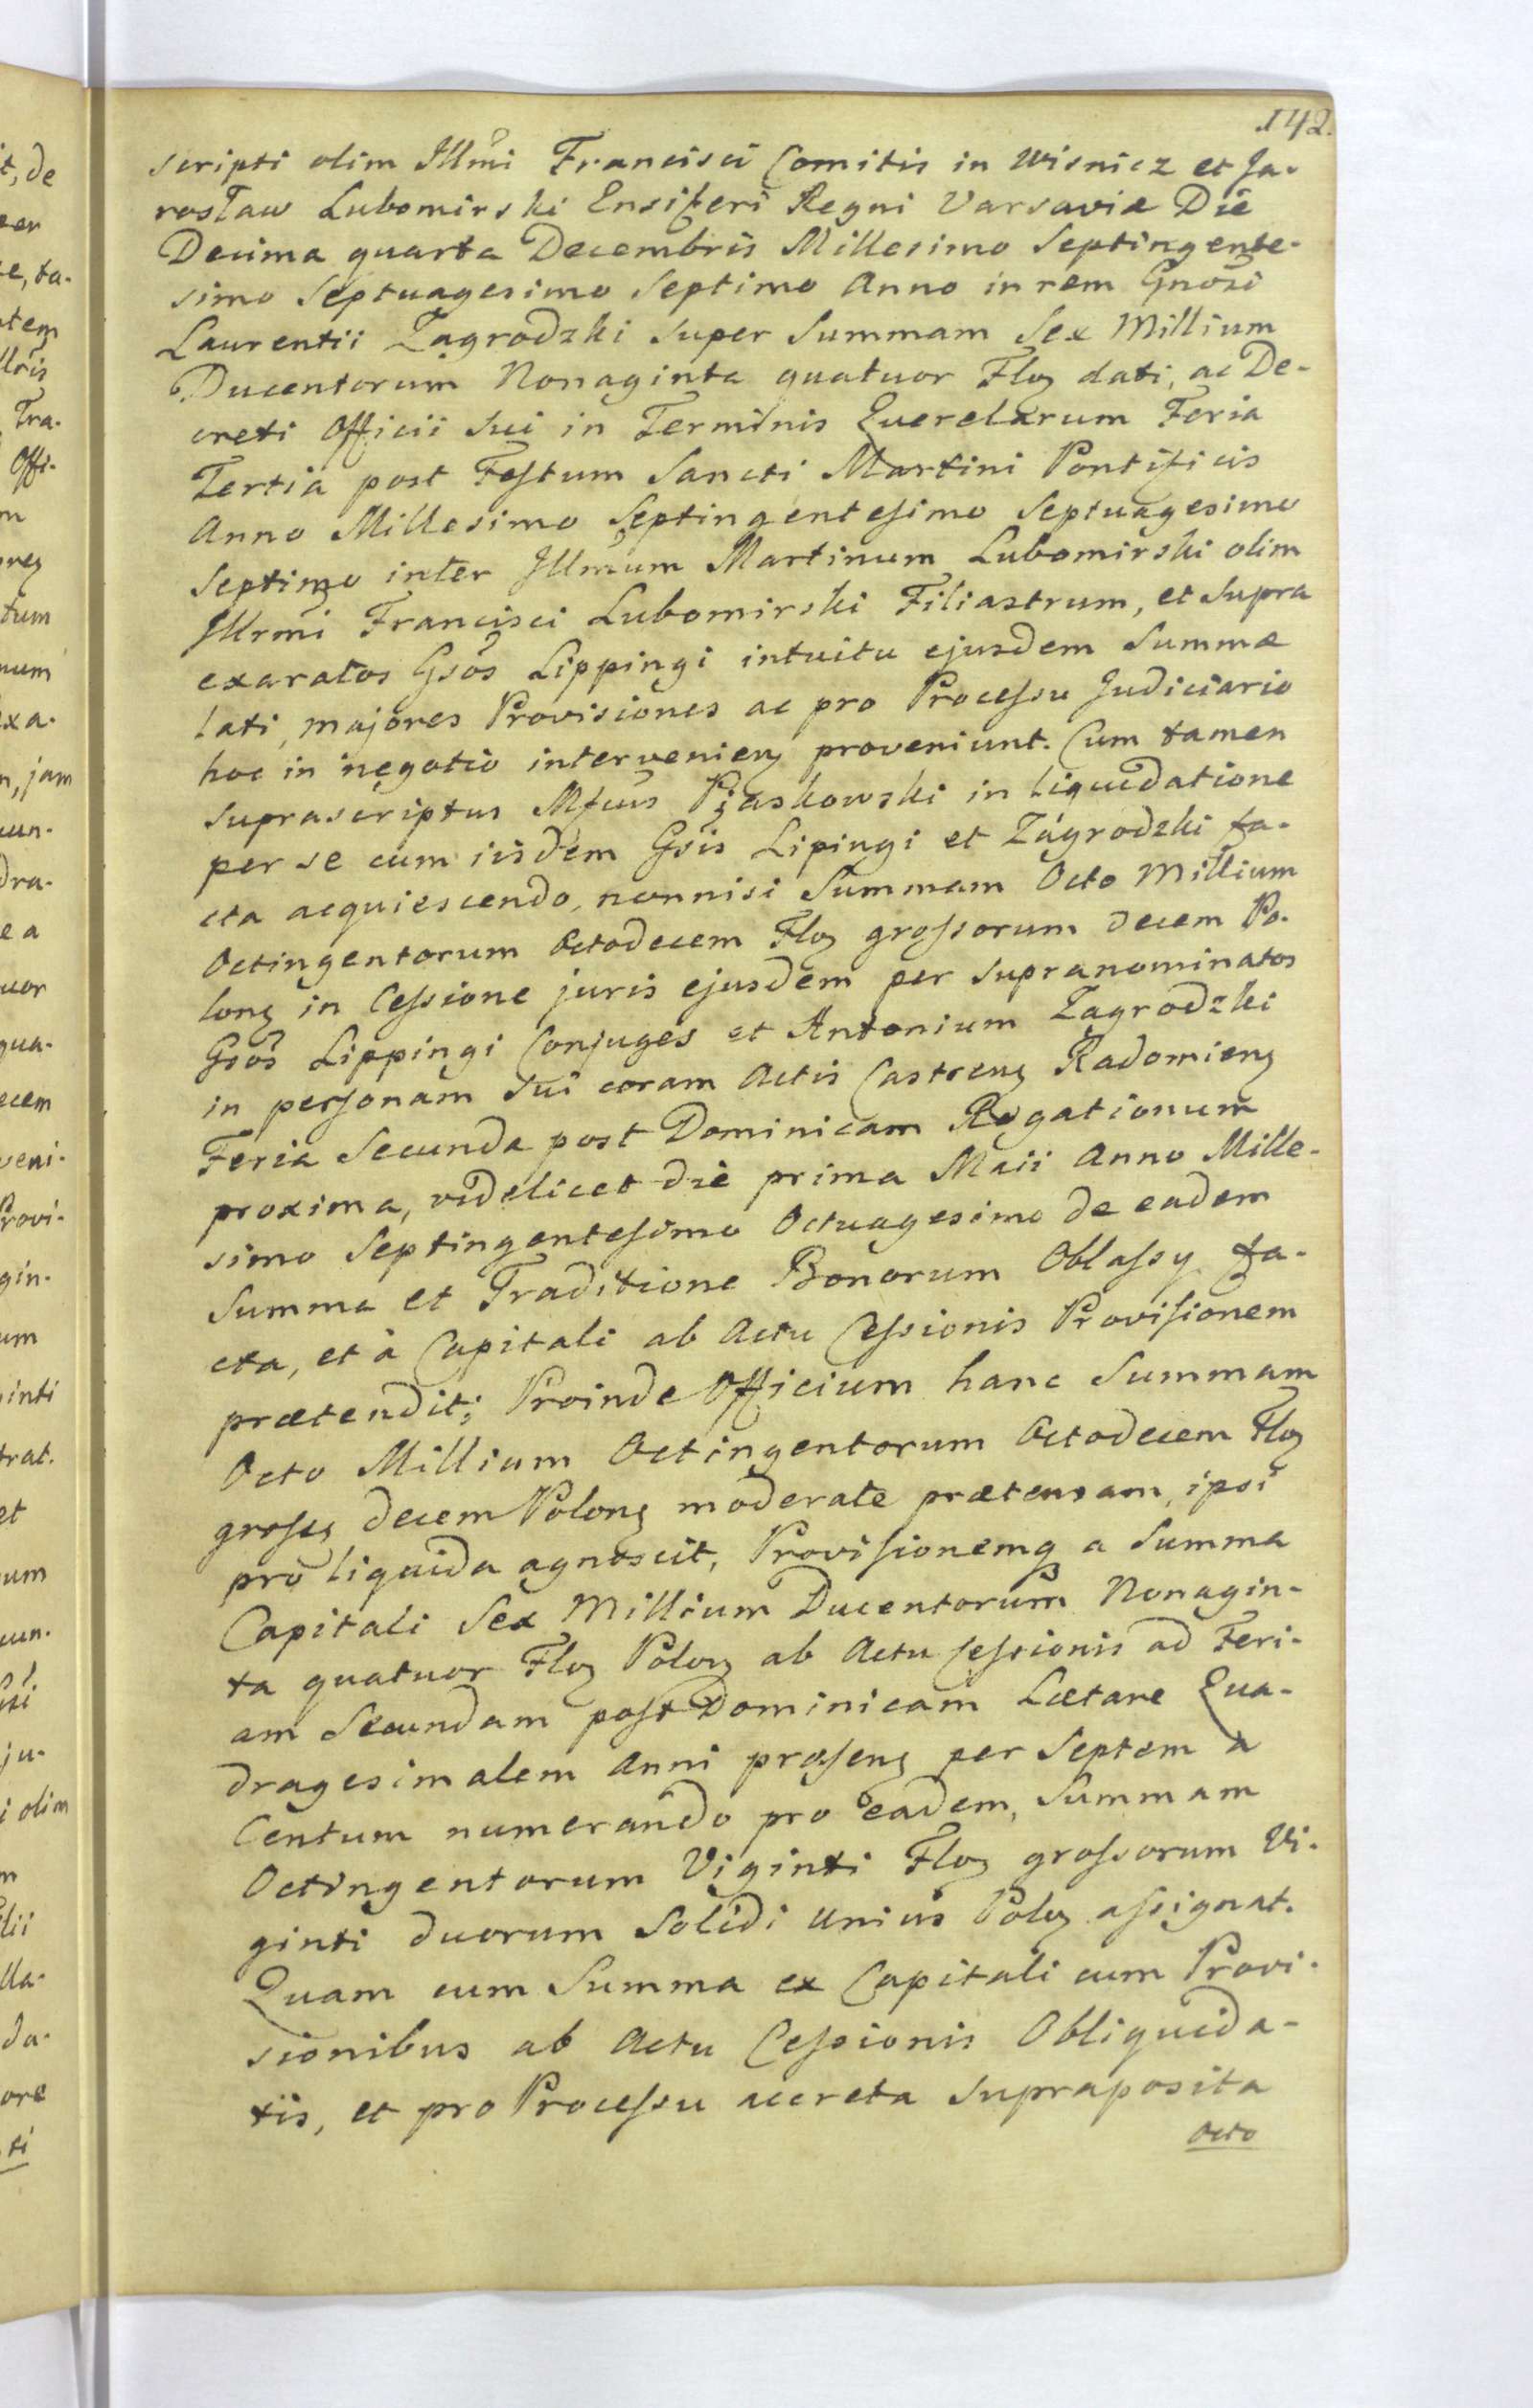 142.
scripti olim Illmi Francisci Comitis in Wisnicz et Ja-
rosław Lubomirski Ensiferi Regni Varsaviæ Die
Decima quarta Decembris Millesimo Septingente-
simo Septuagesimo Septimo Anno in rem Gnosi
Laurentii Zagrodzki super Summam Sex Millium
Ducentorum Nonaginta quatuor Floz dati, ac De-
creti Officii sui in Terminis Querelarum Feria
Tertia post Festum Sancti Martini Pontificis
Anno Millesimo Septingentesimo Septuagesimo
Septimo inter Illmum Martinum Lubomirski olim
Illrmi Francisci Lubomirski Filiastrum, et supra
exaratos Gsos Lippingi intuitu ejusdem Summæ
lati, majores Provisiones ac pro Processu Judiciario
hoc in negotio intervenienz proveniunt. Cum tamen
suprascriptus Mfcus Piaskowski in liquidatione
per se cum iisdem Gsis Lipingi et Zagrodzki fa-
cta acquiescendo, nonnisi Summam Octo Millium
Octingentorum Octodecem Floz grossorum decem Po-
lonz in Cessione juris ejusdem per supranominatos
Gsos Lippingi Conjuges et Antonium Zagrodzki
in personam sui coram Actis Castrenz Radomienz
Feria Secunda post Dominicam Rogationum
proxima, videlicet die prima Maii Anno Mille-
simo Septingentesimo Octuagesimo de eadem
Summa et Traditione Bonorum Oblassy fa-
cta, et à Capitali ab Actu Cessionis Provisionem
prætendit; Proinde Officium hanc Summam
Octo Millium Octingentorum Octodecem Floz
grossz decem Polonz moderate prætensam, ipsi
pro liquida agnoscit, Provisionemq a Summa
Capitali Sex Millium Ducentorum Nonagin-
ta quatuor Floz Polonz ab Actu Cessionis ad Feri-
am Secundam post Dominicam Lætare Qua-
dragesimalem Anni præsenz per Septem a
Centum numerando pro eadem, Summam
Octingentorum Viginti Floz grossorum Vi-
ginti duorum Solidi unius Polonz assignat.
Quam cum Summa ex Capitali cum Provi-
sionibus ab Actu Cessionis Obliquida-
tis, et pro Processu accreta supraposita
Octo